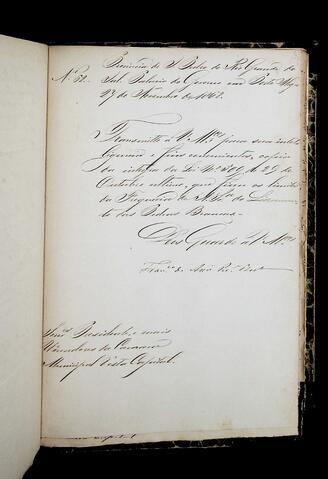 Nº 52.
Provincia de S. Pedro do Rio Grande do
Sul. Palacio do Governo em Porto Alegre
27 de Novembro de 1862.
Transmitto a V. Mces para sua intel-
ligencia e fins convenientes, copia
da integra da Lei Nº de 29 de
Outubro ultimo, que fixou os limites
da Freguezia de N. Sra do Livramen-
to das Pedras Brancas.
Deos Guarde a V. Mces
Snrs Presidente, e mais
Vereadores da Camara
Municipal d'esta Capital.